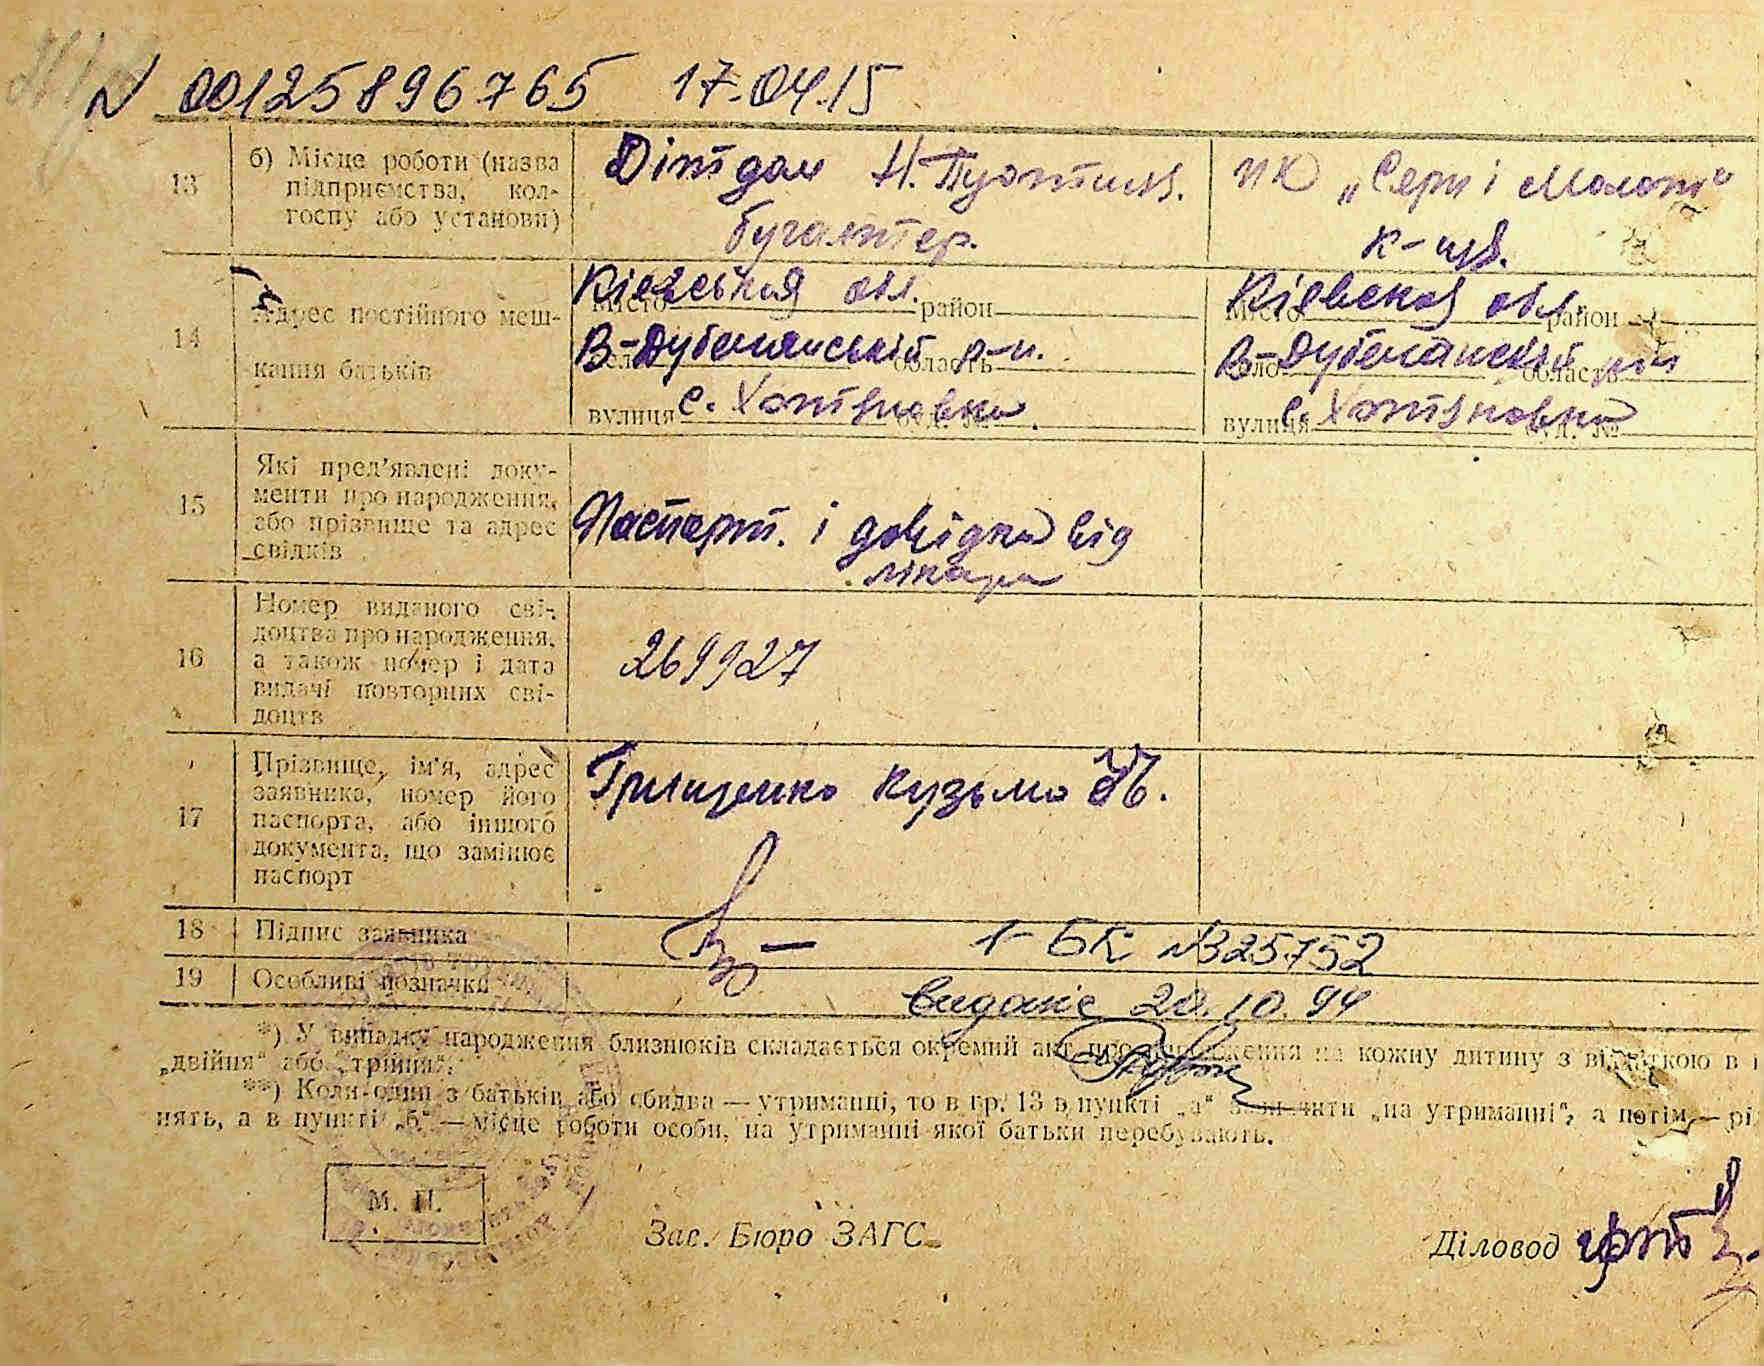 N 00125896765 17.04.15
13 б) Місце роботи (назва підприємства, колгоспу або установи)
Дітдом Н. бугалтер.
ПК „Серп і Молот"
14 Адрес постійного мешкання батьків
Місто район
Село область
вулиця буд. №
Кієвськая обл.
В-Дубечанський р-н.
с. Хотяновка
Місто район
Село область
вулиця буд. №
Кіевская обл.
В-Дубечанский р-н
с. Хотяновка
15 Які пред'явлені документи про народження, або прізвище та адрес свідків
Паспорт. і довідка від лікаря
16 Номер виданого свідоцтва про народження, а також номер і дата видачі повторних свідоцтв
269927
17 Прізвище, ім'я, адрес заявника, номер його паспорта, або іншого документа, що замінює паспорт
Грищенко Кузьма
18 Підпис заявника
1-БК №325752
19 Особливі позначки
видане 20.10.94
*) У випадку народження близнюків складається окремий акт про народження на кожну дитину з відміткою в
„двійня" або „трійня".
**) Коли один з батьків або обидва — утриманці, то в гр. 13 в пункті „а" зазначити „на утриманні", а потім —
нять, а в пункті „б" — місце роботи особи, на утриманні якої батьки перебувають.
М. П.
Зас. Бюро ЗАГС
Діловод